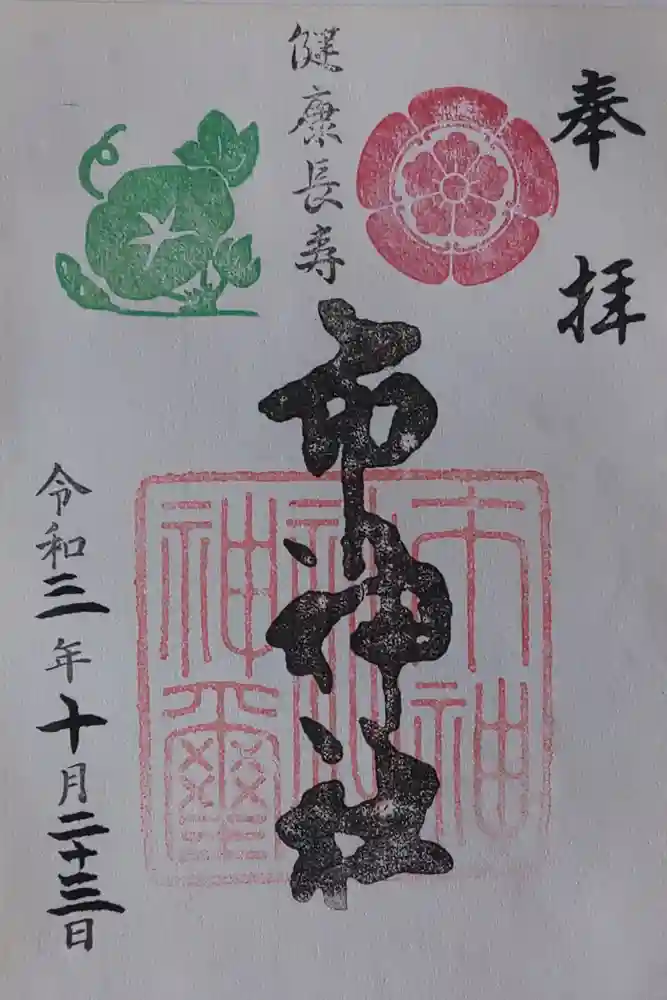 奉拝
健康長寿
市神社
市神社神璽
令和三年十月二十三日